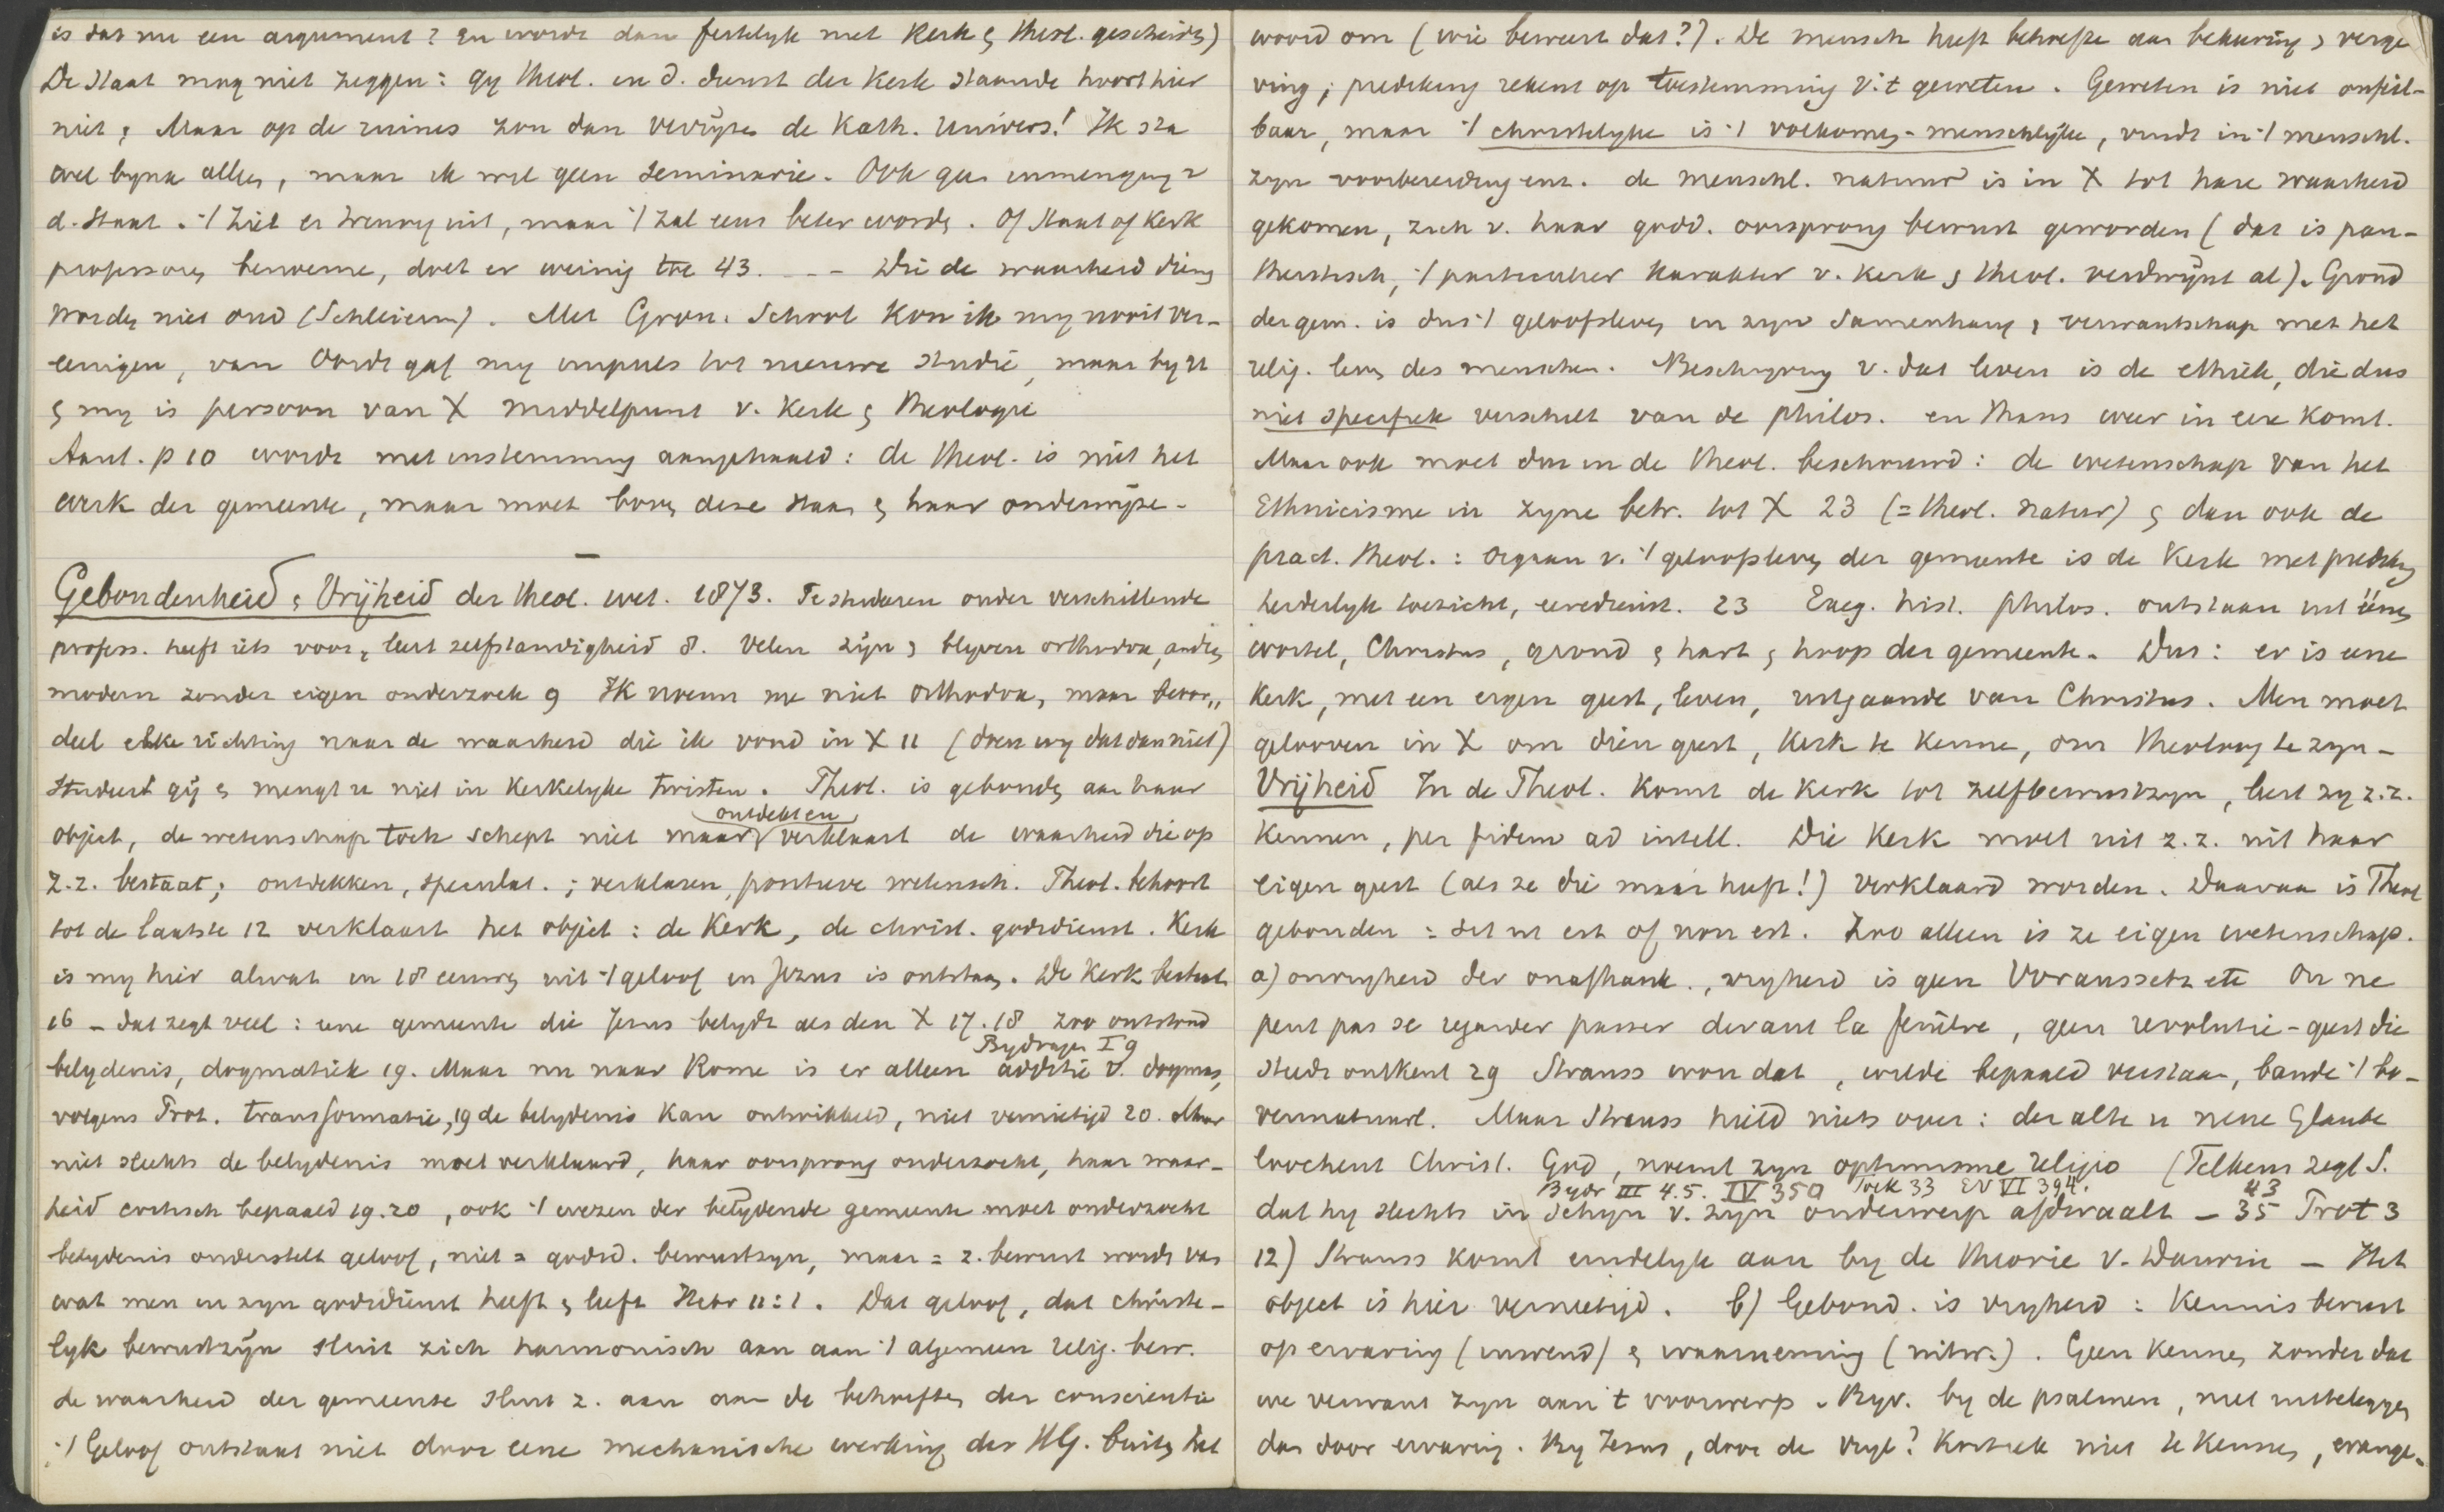 is dat nu een argument? en wordt dan feitelyk met Kerk & theol. gescheiden)
De Staat mag niet zeggen: gy theol. in d. dienst der Kerk staande hoort hier
niet, Maar op de ruines zou dan verrijzen de Kath. Univers.! Ik sta
over byna alles, maar ik wil geen seminarie. Ook geen inmenging v
d. Staat. 't ziet er treurig uit, maar 't zal eens beter worden. Of Staat of Kerk
professoren benoeme, doet er weinig toe 43. - - - Die de waarheid dienen
worden niet oud (Schleierm). Met Gron. School kon ik my nooit ver-
eenigen, van Oordt gaf my impuls tot nieuwe studie, maar by u
& my is persoon van X middelpunt v. Kerk & Theologie
Aant. p 10 wordt met instemming aangehaald: de theol. is niet het
werk der gemeente, maar moet boven deze staan & haar onderwijze.
Gebondenheid & Vrijheid der theol. wet. 1873. Te studeren onder verschillende
profess. heeft iets voor, leert zelfstandigheid 8. Velen zijn & blyven orthodox, anderen
modern zonder eigen onderzoek 9 Ik noem me niet orthodox, maar beoor„
deel elke richting naar de waarheid die ik vond in X 11 (doen wy dat dan niet)
Studeert gij & mengt u niet in Kerkelyke twisten. Theol. is gebonden aan haar
object, de wetenschap toch schept niet maar ontdekt en verklaart de waarheid die op
z.z. bestaat; ontdekken, speculat.; verklaren, positieve wetensch. Theol. behoort
tot de laatste 12 verklaart het object: de Kerk, de christ. godsdienst. Kerk
is my hier alwat in 18 eeuwen uit 't geloof in Jezus is ontstaan. De Kerk bestaat
16 - dat zegt veel: eene gemeente die Jezus belydt als den X 17.18 zoo ontstond
Bydragen I 9
belydenis, dogmatiek 19. Maar nu naar Rome is er alleen additie v. dogmas,
volgens Prot. transformatie, 19 de belydenis kan ontwikkeld, niet vernietigd 20. Maar
niet slechts de belydenis moet verklaard, haar oorsprong onderzocht, haar waar-
heid critisch bepaald 19.20, ook 't wezen der belydende gemeente moet onderzocht
belydenis onderstelt geloof, niet = godsd. bewustzyn, maar = z. bewust worden van
wat men in zyn godsdienst heeft & leeft Hebr 11:1. Dat geloof, dat christe-
lyk bewustzijn sluit zich harmonisch aan aan 't algemeen relig. bew.
de waarheid der gemeente sluit z. aan aan de behoeften der conscientie
't Geloof ontstaat niet door eene mechanische werking des HG. buiten het
woord om (wie beweert dat?). De mensch heeft behoefte aan bekeering & verge
ving; prediking rekent op toestemming v. 't geweten. Geweten is niet onfeil-
baar, maar 't christelyke is 't volkomen-menschelijke, vindt in 't menschl.
zyn voorbereiding enz. de menschl. natuur is in X tot hare waarheid
gekomen, zich v. haar godd. oorsprong bewust geworden (dat is pan-
theistisch, 't particulier karakter v. Kerk & theol. verdwijnt al). Grond
der gem. is dus 't geloofsleven in zyn samenhang & verwantschap met het
relig. leven des menschen. Beschryving v. dat leven is de ethiek, die dus
niet specifiek verschilt van de philos. en thans weer in eere komt.
Maar ook moet dan in de theol. beschouwd: de wetenschap van het
Ethnicisme in zyne betr. tot X 23 (= theol. natur) & dan ook de
pract. theol.: orgaan v. 't geloofsleven der gemeente is de Kerk met predikg
herderlyk toezicht, eeredienst. 23 Exeg. hist. philos. ontstaan uit éénen
wortel, Christus, grond & hart & hoop der gemeente. Dus: er is eene
Kerk, met een eigen geest, leven, uitgaande van Christus. Men moet
gelooven in X om dien geest, Kerk te kennen, om theoloog te zyn.
Vrijheid In de Theol. komt de Kerk tot zelfbewustzyn, leert zy z.z.
kennen, per fidem ad intell. Die Kerk moet uit z.z. uit haar
eigen geest (als ze die maar heeft!) verklaard worden. Daaraan is Theol
gebonden: sit ut est of non est. Zoo alleen is ze eigen wetenschap.
a) onvryheid der onafhank., vryheid is geen Voraussetz etc On ne
peut pas se regarder passer devant la fenêtre, geen revolutie-geest die
steeds ontkent 29 Strauss won dat, wilde bepaald verstaan, bande 't bo-
vennatuurl. Maar Strauss hield niets over: der alte u neue Glaube
loochent Christ. God, noemt zyn optimisme religio (Telkens zegt S.
Bydr III 4.5. IV 350 Toek 33 EV VI 394. 43
dat hy slechts in schyn v. zyn onderwerp afdwaalt - 35 Prot 3
12) Strauss komt eindelyk aan by de theorie v. Darwin - Het
object is hier vernietigd. b) Gebond. is vryheid: Kennis berust
op ervaring (inwend) & waarneming (uitw.). Geen kennen zonder dat
we verwant zyn aan 't voorwerp. Byv. by de psalmen, niet uitteleggen
dan door ervaring. By Jezus, door de vrye? Kritiek niet te kennen, evange-